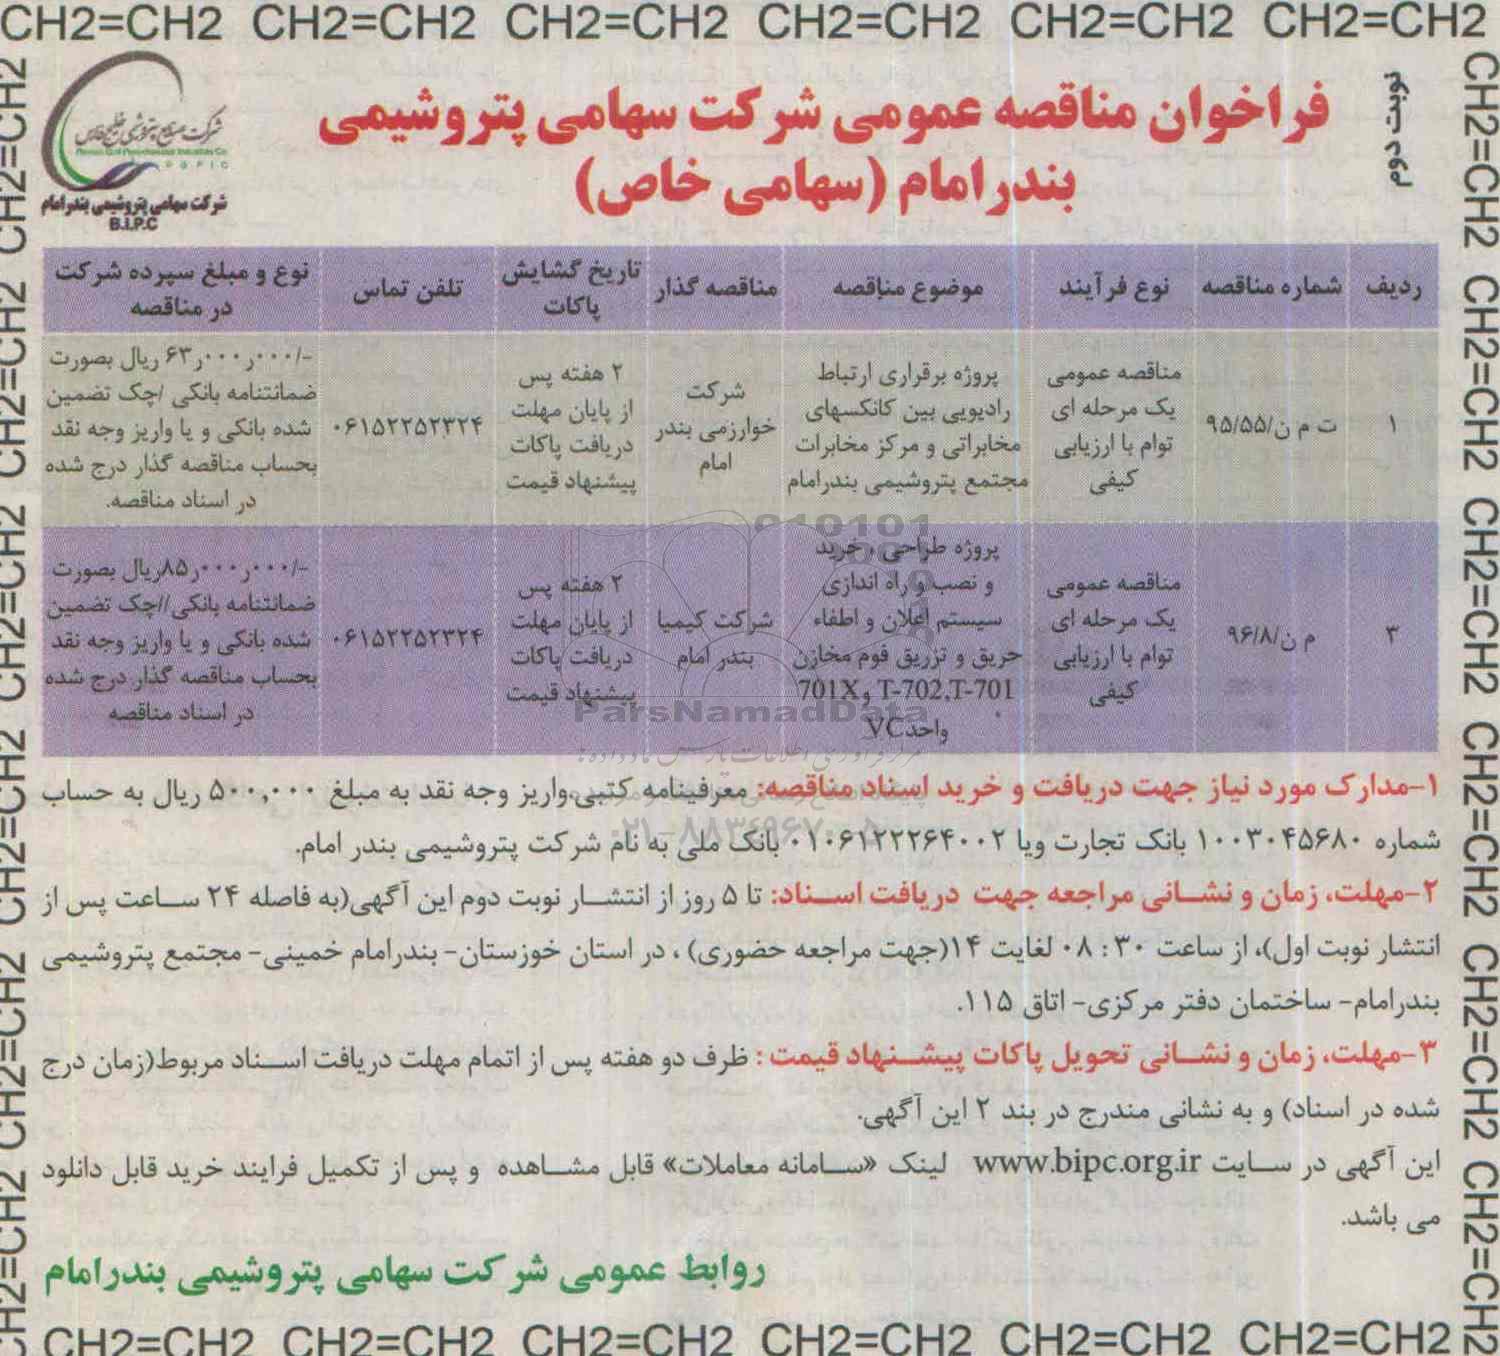 CH2=CH2 CH2=CH2 CH2=CH2 CH2=CH2 CH2=CH2 CH2=CH2
نوبت دوم
فراخوان مناقصه عمومی شرکت سهامی پتروشیمی
بندرامام (سهامی خاص)
شرکت صنایع پتروشیمی خلیج فارس
Persian Gulf Petrochemical Industries Co
P G P I C
شرکت سهامی پتروشیمی بندرامام
B.I.P.C
ردیف شماره مناقصه نوع فرآیند موضوع مناقصه مناقصه گذار تاریخ گشایش پاکات تلفن تماس نوع و مبلغ سپرده شرکت در مناقصه
۱
ت م ن/۹۵/۵۵
مناقصه عمومی
یک مرحله ای
توام با ارزیابی
کیفی
پروژه برقراری ارتباط
رادیویی بین کانکسهای
مخابراتی و مرکز مخابرات
مجتمع پتروشیمی بندرامام
شرکت
خوارزمی بندر
امام
۲ هفته پس
از پایان مهلت
دریافت پاکات
پیشنهاد قیمت
۰۶۱۵۲۲۵۲۳۲۴
-/۰۰۰ر۰۰۰ر۶۳ ریال بصورت
ضمانتنامه بانکی /چک تضمین
شده بانکی و یا واریز وجه نقد
بحساب مناقصه گذار درج شده
در اسناد مناقصه.
۳
م ن/۹۶/۸
مناقصه عمومی
یک مرحله ای
توام با ارزیابی
کیفی
پروژه طراحی ، خرید
و نصب و راه اندازی
سیستم اعلان و اطفاء
حریق و تزریق فوم مخازن
T-702,T-701 و 701X
واحد VC
شرکت کیمیا
بندر امام
۲ هفته پس
از پایان مهلت
دریافت پاکات
پیشنهاد قیمت
۰۶۱۵۲۲۵۲۳۲۴
-/۰۰۰ر۰۰۰ر۸۵ریال بصورت
ضمانتنامه بانکی//چک تضمین
شده بانکی و یا واریز وجه نقد
بحساب مناقصه گذار درج شده
در اسناد مناقصه
ParsNamadData
۰۲۱-۸۸۳۴۹۶۷۰
۱-مدارک مورد نیاز جهت دریافت و خرید اسناد مناقصه: معرفینامه کتبی،واریز وجه نقد به مبلغ ۵۰۰,۰۰۰ ریال به حساب
شماره ۱۰۰۳۰۴۵۶۸۰ بانک تجارت ویا ۰۱۰۶۱۲۲۲۶۴۰۰۲ بانک ملی به نام شرکت پتروشیمی بندر امام.
۲-مهلت، زمان و نشانی مراجعه جهت دریافت اسناد: تا ۵ روز از انتشار نوبت دوم این آگهی(به فاصله ۲۴ ساعت پس از
انتشار نوبت اول)، از ساعت ۳۰ : ۰۸ لغایت ۱۴(جهت مراجعه حضوری) ، در استان خوزستان- بندرامام خمینی- مجتمع پتروشیمی
بندرامام- ساختمان دفتر مرکزی- اتاق ۱۱۵.
۳-مهلت، زمان و نشانی تحویل پاکات پیشنهاد قیمت : ظرف دو هفته پس از اتمام مهلت دریافت اسناد مربوط(زمان درج
شده در اسناد) و به نشانی مندرج در بند ۲ این آگهی.
این آگهی در سایت www.bipc.org.ir لینک «سامانه معاملات» قابل مشاهده و پس از تکمیل فرایند خرید قابل دانلود
می باشد.
روابط عمومی شرکت سهامی پتروشیمی بندرامام
CH2=CH2 CH2=CH2 CH2=CH2 CH2=CH2 CH2=CH2 CH2=CH2